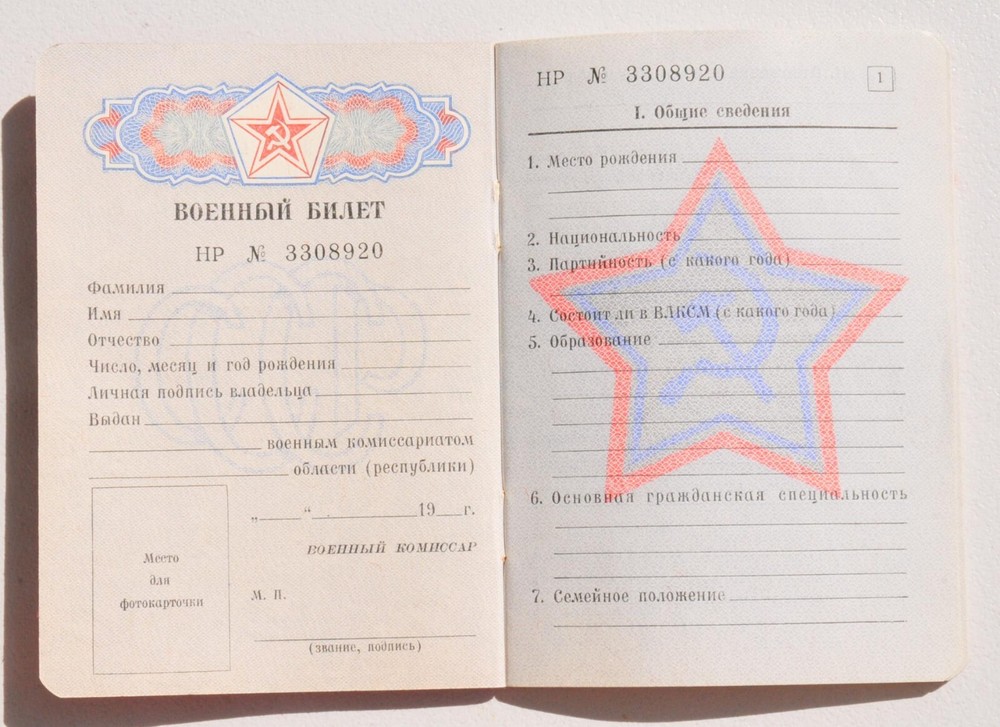 ВОЕННЫЙ БИЛЕТ
НР № 3308920
Фамилия
Имя
Отчество
Число, месяц и год рождения
Личная подпись владельца
Выдан
военным комиссариатом
области (республики)
„ “ 19 г.
ВОЕННЫЙ КОМИССАР
Место
для
фотокарточки
М. П.
(звание, подпись)
НР № 3308920
1
I. Общие сведения
1. Место рождения
2. Национальность
3. Партийность (с какого года)
4. Состоит ли в ВЛКСМ (с какого года)
5. Образование
6. Основная гражданская специальность
7. Семейное положение